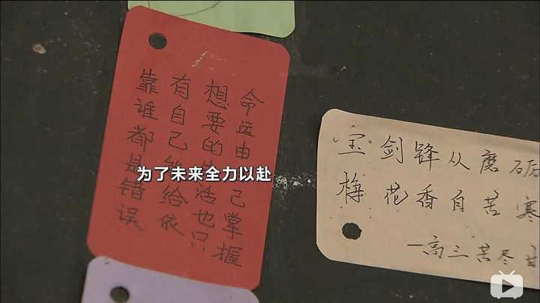 命运由自己掌握
想要的生活也只
有自己能给依
靠谁都是错误
为了未来全力以赴
宝剑锋从磨砺
梅花香自苦寒
—高三苦尽